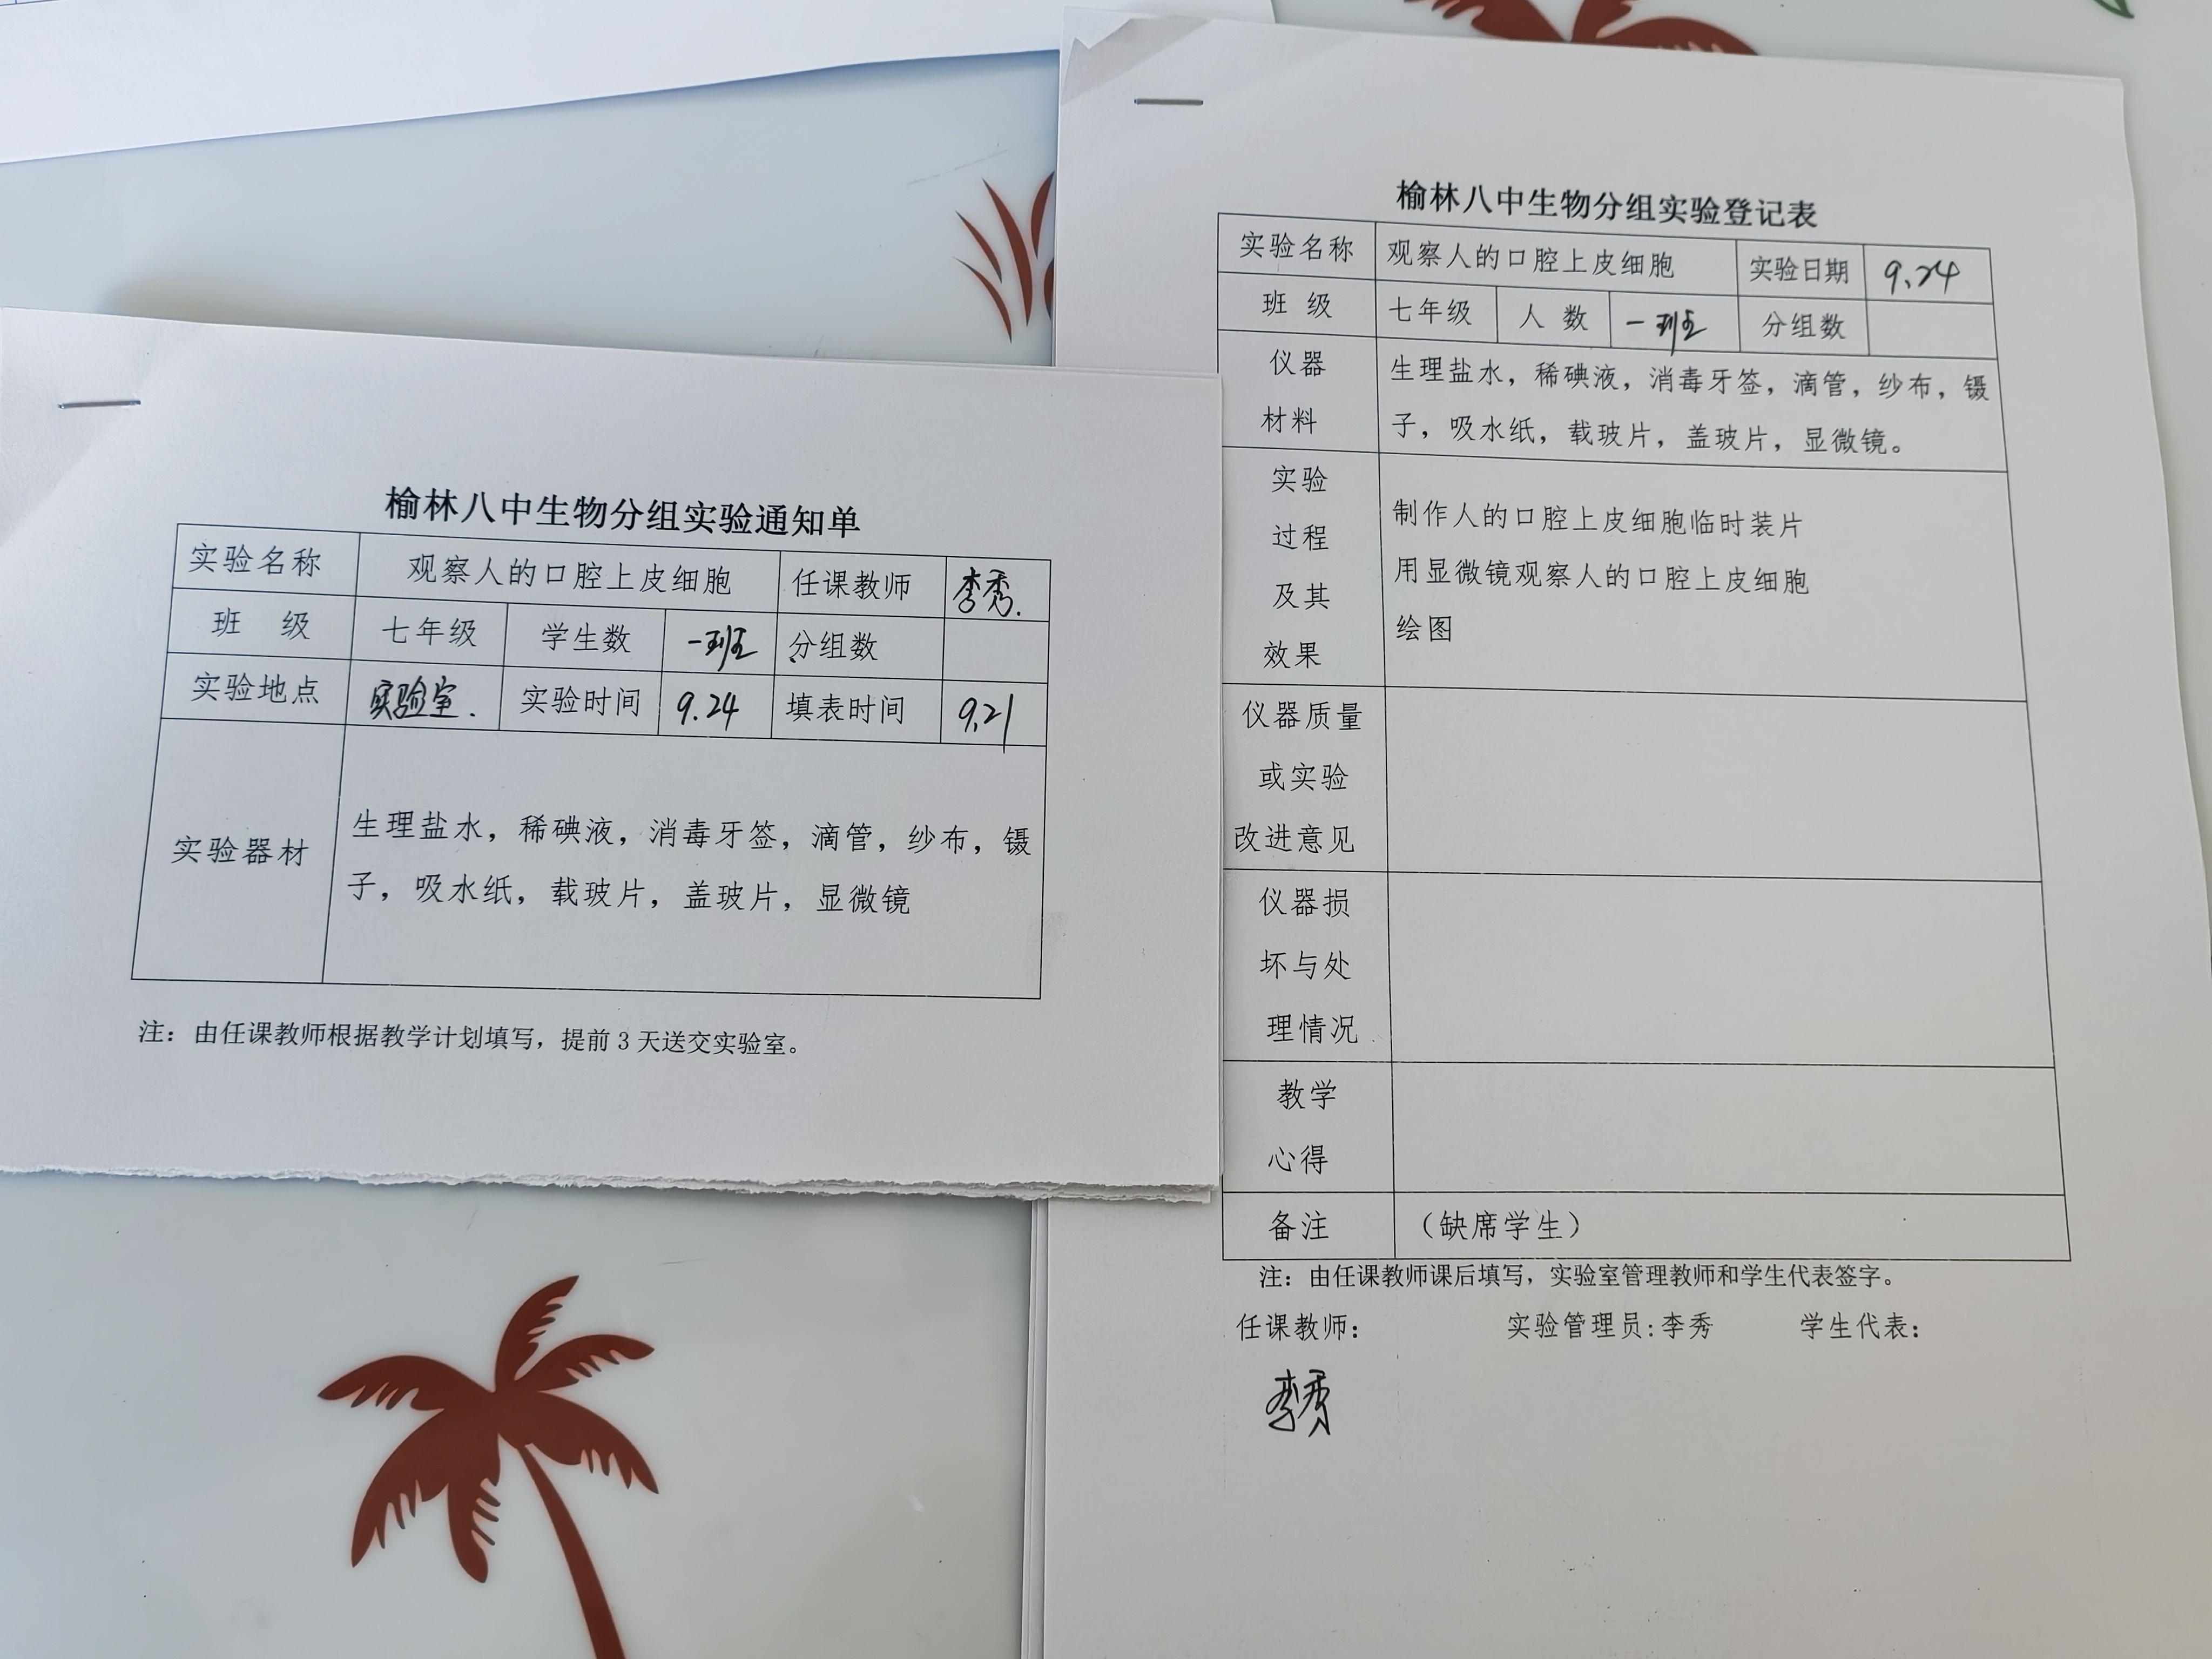 榆林八中生物分组实验通知单
实验名称 观察人的口腔上皮细胞 任课教师 李秀.
班 级 七年级 学生数 一班 分组数
实验地点 实验室. 实验时间 9.24 填表时间 9.21
实验器材
生理盐水，稀碘液，消毒牙签，滴管，纱布，镊
子，吸水纸，载玻片，盖玻片，显微镜
注：由任课教师根据教学计划填写，提前 3 天送交实验室。
榆林八中生物分组实验登记表
实验名称 观察人的口腔上皮细胞 实验日期 9.24
班 级 七年级 人 数 一班 分组数
仪器
材料
生理盐水，稀碘液，消毒牙签，滴管，纱布，镊
子，吸水纸，载玻片，盖玻片，显微镜。
实验
过程
及其
效果
制作人的口腔上皮细胞临时装片
用显微镜观察人的口腔上皮细胞
绘图
仪器质量
或实验
改进意见
仪器损
坏与处
理情况
教学
心得
备注 （缺席学生）
注：由任课教师课后填写，实验室管理教师和学生代表签字。
任课教师： 实验管理员:李秀 学生代表：
李秀